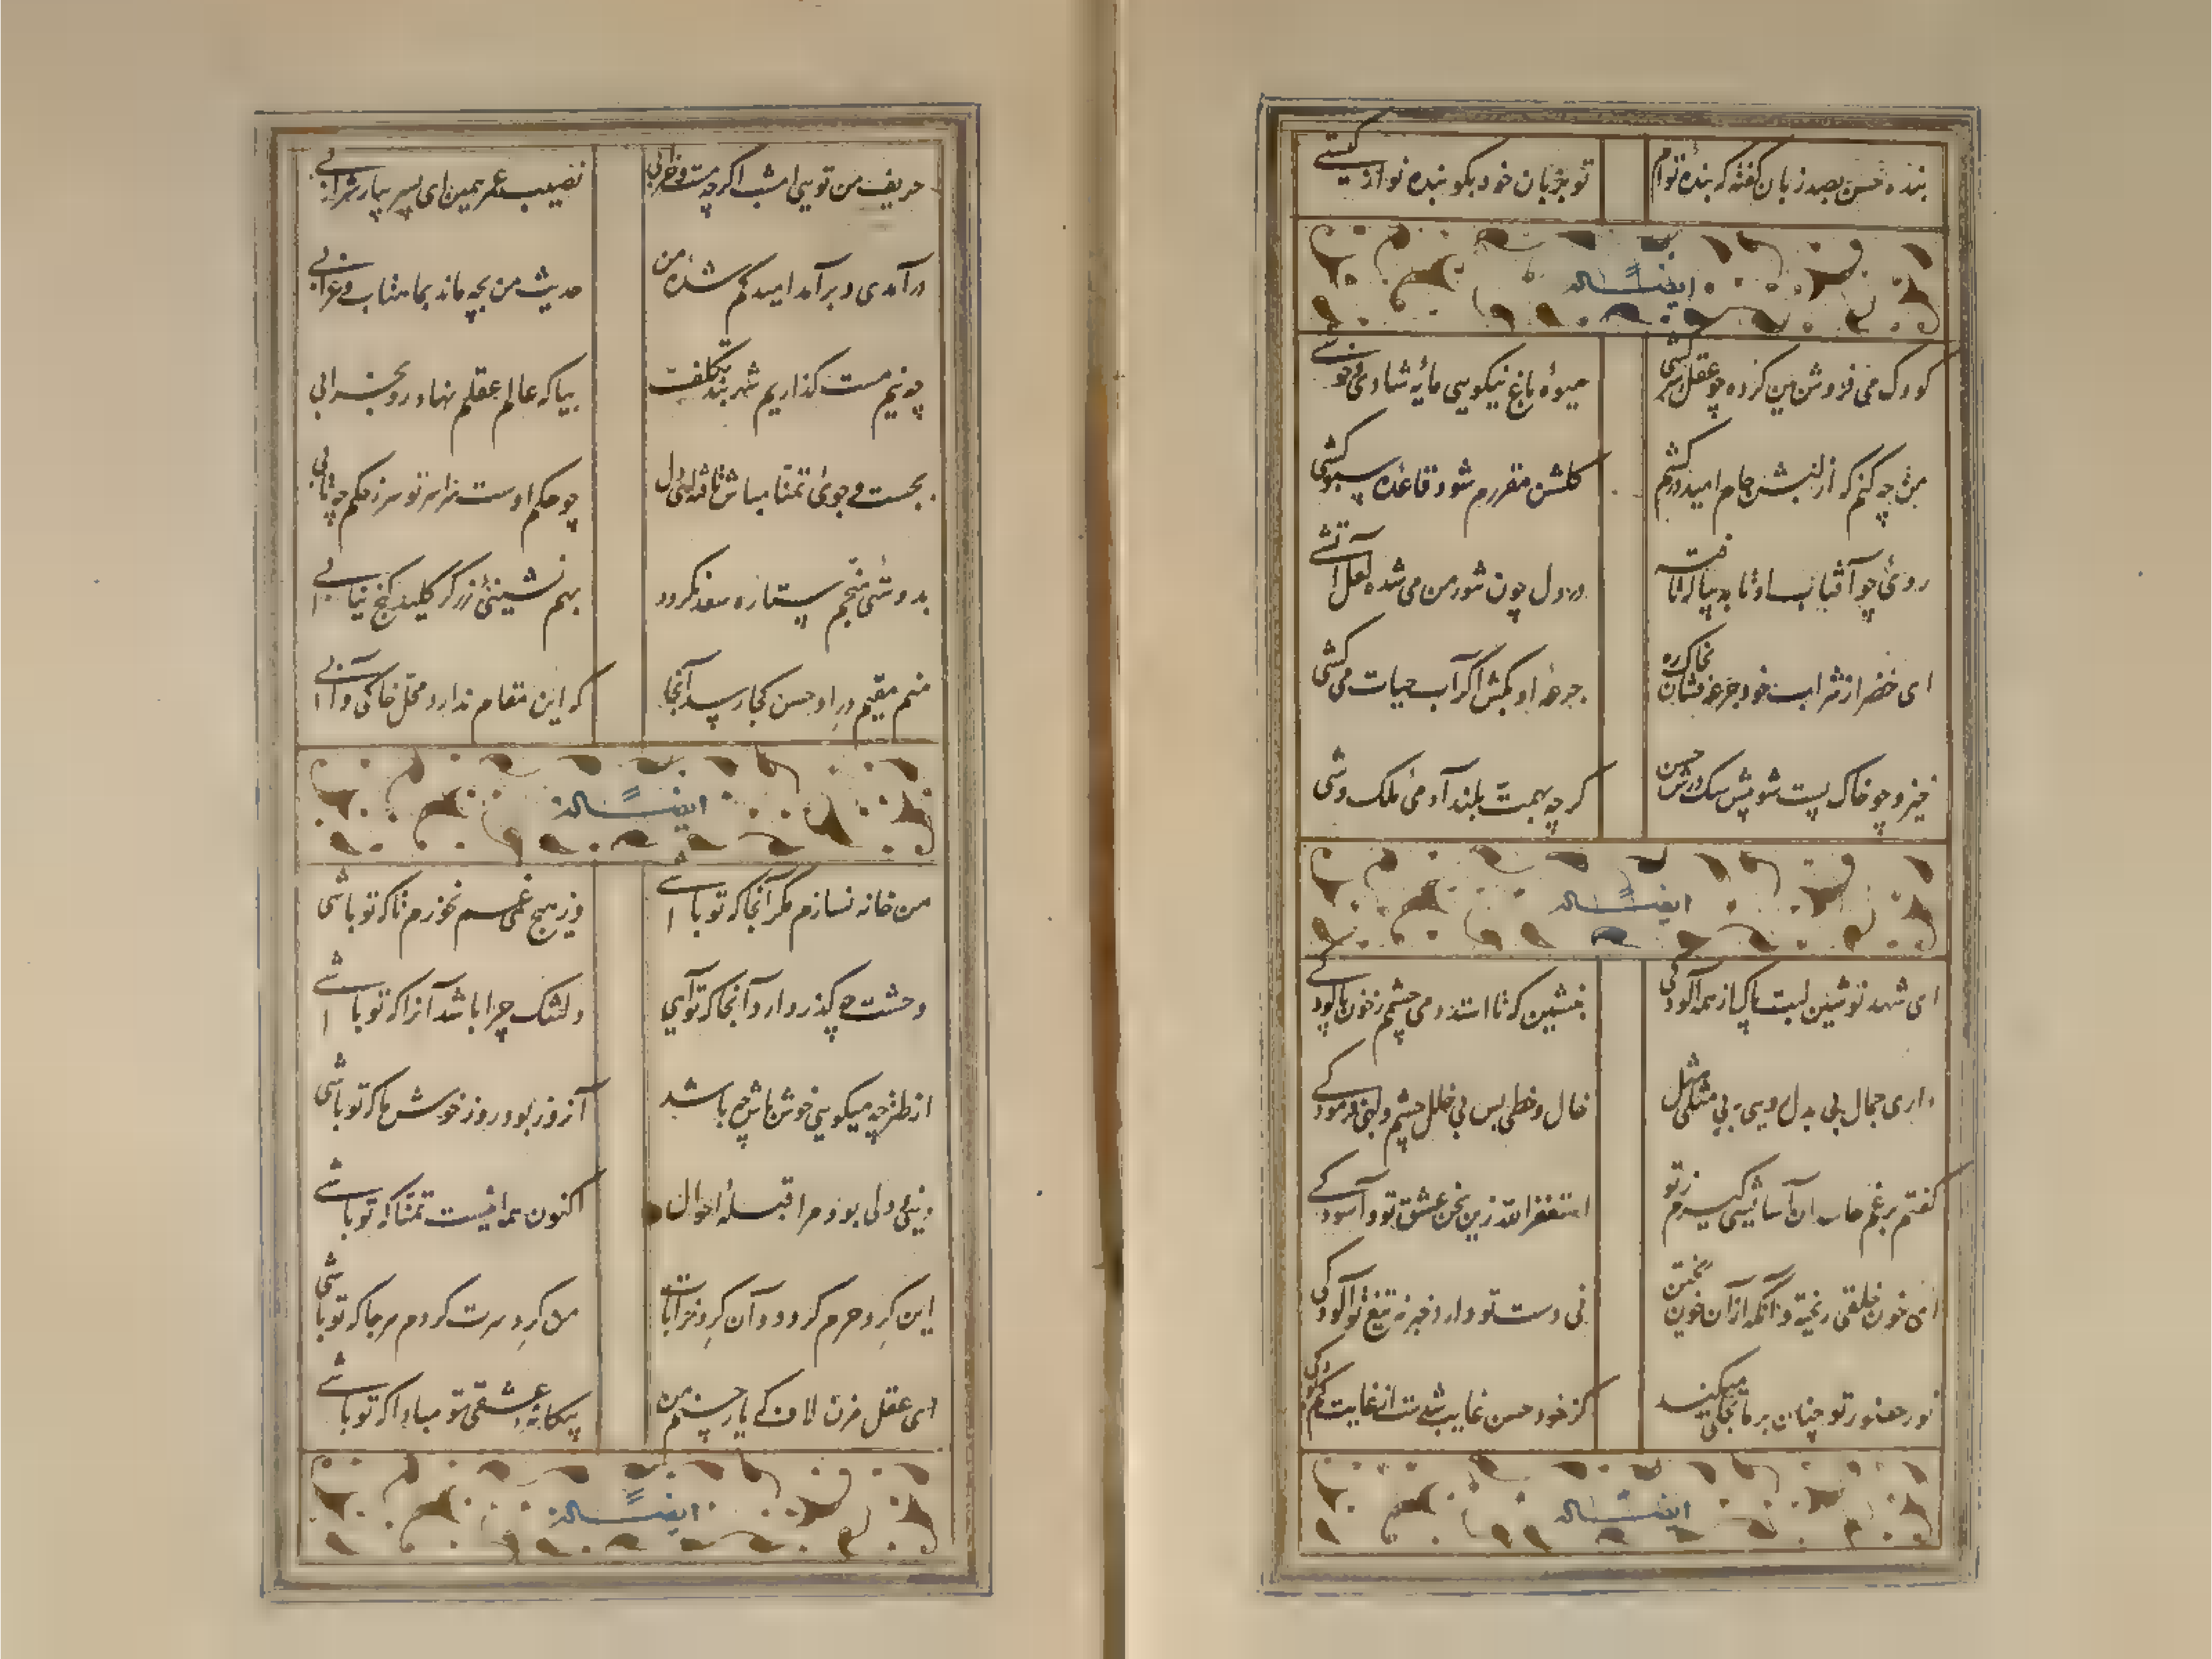 بنده حسن بصد زبان گفته که بندهٔ توام تو بزبان خود بگو بنده نواز کیستی
ایضا له
کودک می فروش من کزده چو عقل سرکشی میوهٔ باغ نیکویی مایهٔ شادی و خوشی
من چه کنم که از لبش جام امید درکشم گلشن مقررم شود قاعدهٔ سبوکشی
روی چو آفتاب او تا به پیاله تافته در دل چون شور من می شده لعل آتشی
ای خضر از شراب خود جرعه فشان بخاک ره جرعهٔ او بکش اگر آب حیات می کشی
خیز و چو خاک پست شو پیش سک درش حسن گرچه بهمت بلند آدمی ملک وشی
ایضا له
ای شهد نوشین لبت پاک از همه آلودگی بنشین که تا استد دمی چشم ز خون پالودگی
داری جمال بی بدل ویی بی مثل خال و خطی بس بی خلل چشم و لبی فرمودگی
گفتم برغم حاسدان آسایشی گیرم ز تو استغفر الله زین سخن عشق تو و آسودگی
ای خون خلقی ریخته وانگه از آن خون ریختن نی دست تو دارد خبر نه تیغ تو آلودگی
نور حضور تو چنان بر ما تجلی میکند کز خود حسن غایب شدست از غایت
ایضا له
حریف من تویی امشب اگرچه مست و خرابی نصیب عمر همین ای پسر بیار شرابی
درآمدی و برآمد امید گم شده من حدیث من بچه ماند بماهتاب و غرابی
چو نیم مست گذاریم شهربند تکلف بیا که عالم عقلم نهاد رو بخرابی
بجست و جوی تمنا مباش تافته ای دل چو حکم اوست سراسر تو سر ز حکم چه تابی
بدوستی منجم ستاره سعد نگردد بهم نشینی زرگر کلید گنج نیابی
منم مقیم در او حسن کجا رسد آنجا که این مقام ندارد محل خاکی و آبی
ایضا له
من خانه نسازم مگر آنجا که تو باشی وز هیچ غمی غم نخورم تا که تو باشی
وحشت چه گذر دارد آنجا که تو آیی دلتنگ چرا باشد آنرا که تو باشی
از طنز چه میگویی خوش باش چه باشد آنروز بود روز خوش ما که تو باشی
دینی و دلی بود مرا قبلهٔ احوال اکنون همه نیست تمنا که تو باشی
این گرد حرم گردد و آن گرد خرابات من گرد سرت گردم هرجا که تو باشی
ای عقل مزن لاف که یار حسنم من بیگانه عشقی تو مبادا که تو باشی
ایضا له